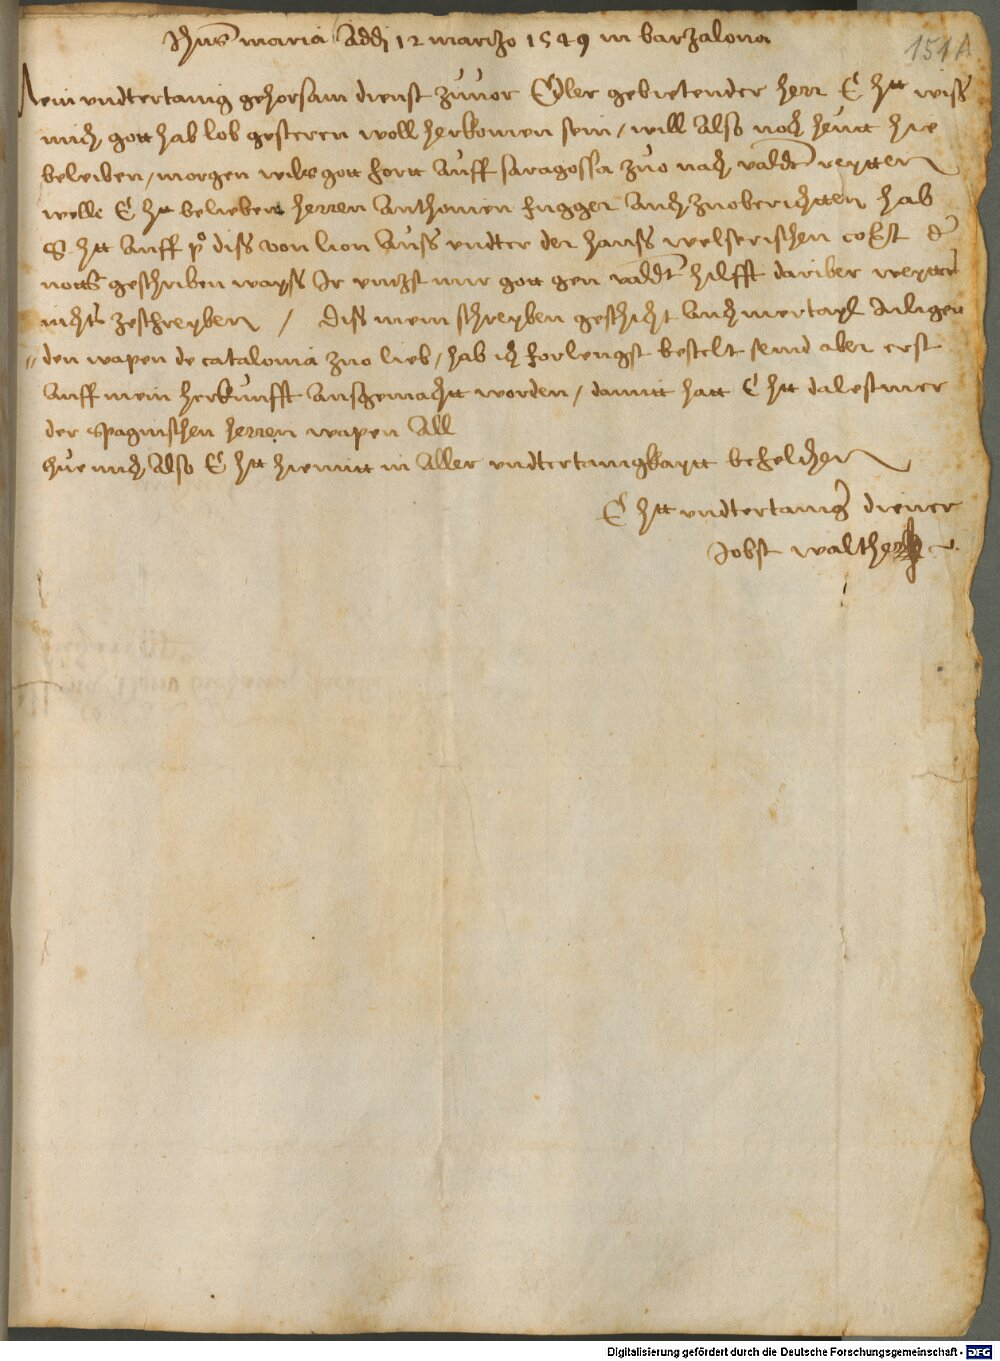 Jhus maria Addj 12 marczo 1549 in barzalona
151A
Mein undtertanig gehorsam dienst zuvor Edler gebietender herr E htt wiss
mich gott hab lob gesteren woll herkomen sein / will Also noch heutt hie
beleiben / morgen wils gott fortt Auff saragossa zuo nach valdt reytten
welle E htt belieben herren Anthonien fugger Auch zuoberichtten hab
S htt Auff po diss von lion Auss undter der hanss welserischen coffst
notts geschriben wayss Jr umzst mir gott gen vaddt hilfft dariber weytter
nichts zeschreyben / Diss mein schreyben geschicht Auch mertayl Anligen
den wapen de catalonia zuo lieb / hab ich forlengst bestelt seind aber erst
Auff mein herkunfft Aussgemachtt worden / damitt hatt E htt dalest mer
der spagnischen herren wapen All
thue mich Also E htt hiemitt in Aller undtertanigkaytt befelchen
E htt undtertanig diener
Jobst walther
Digitalisierung gefördert durch die Deutsche Forschungsgemeinschaft - DFG